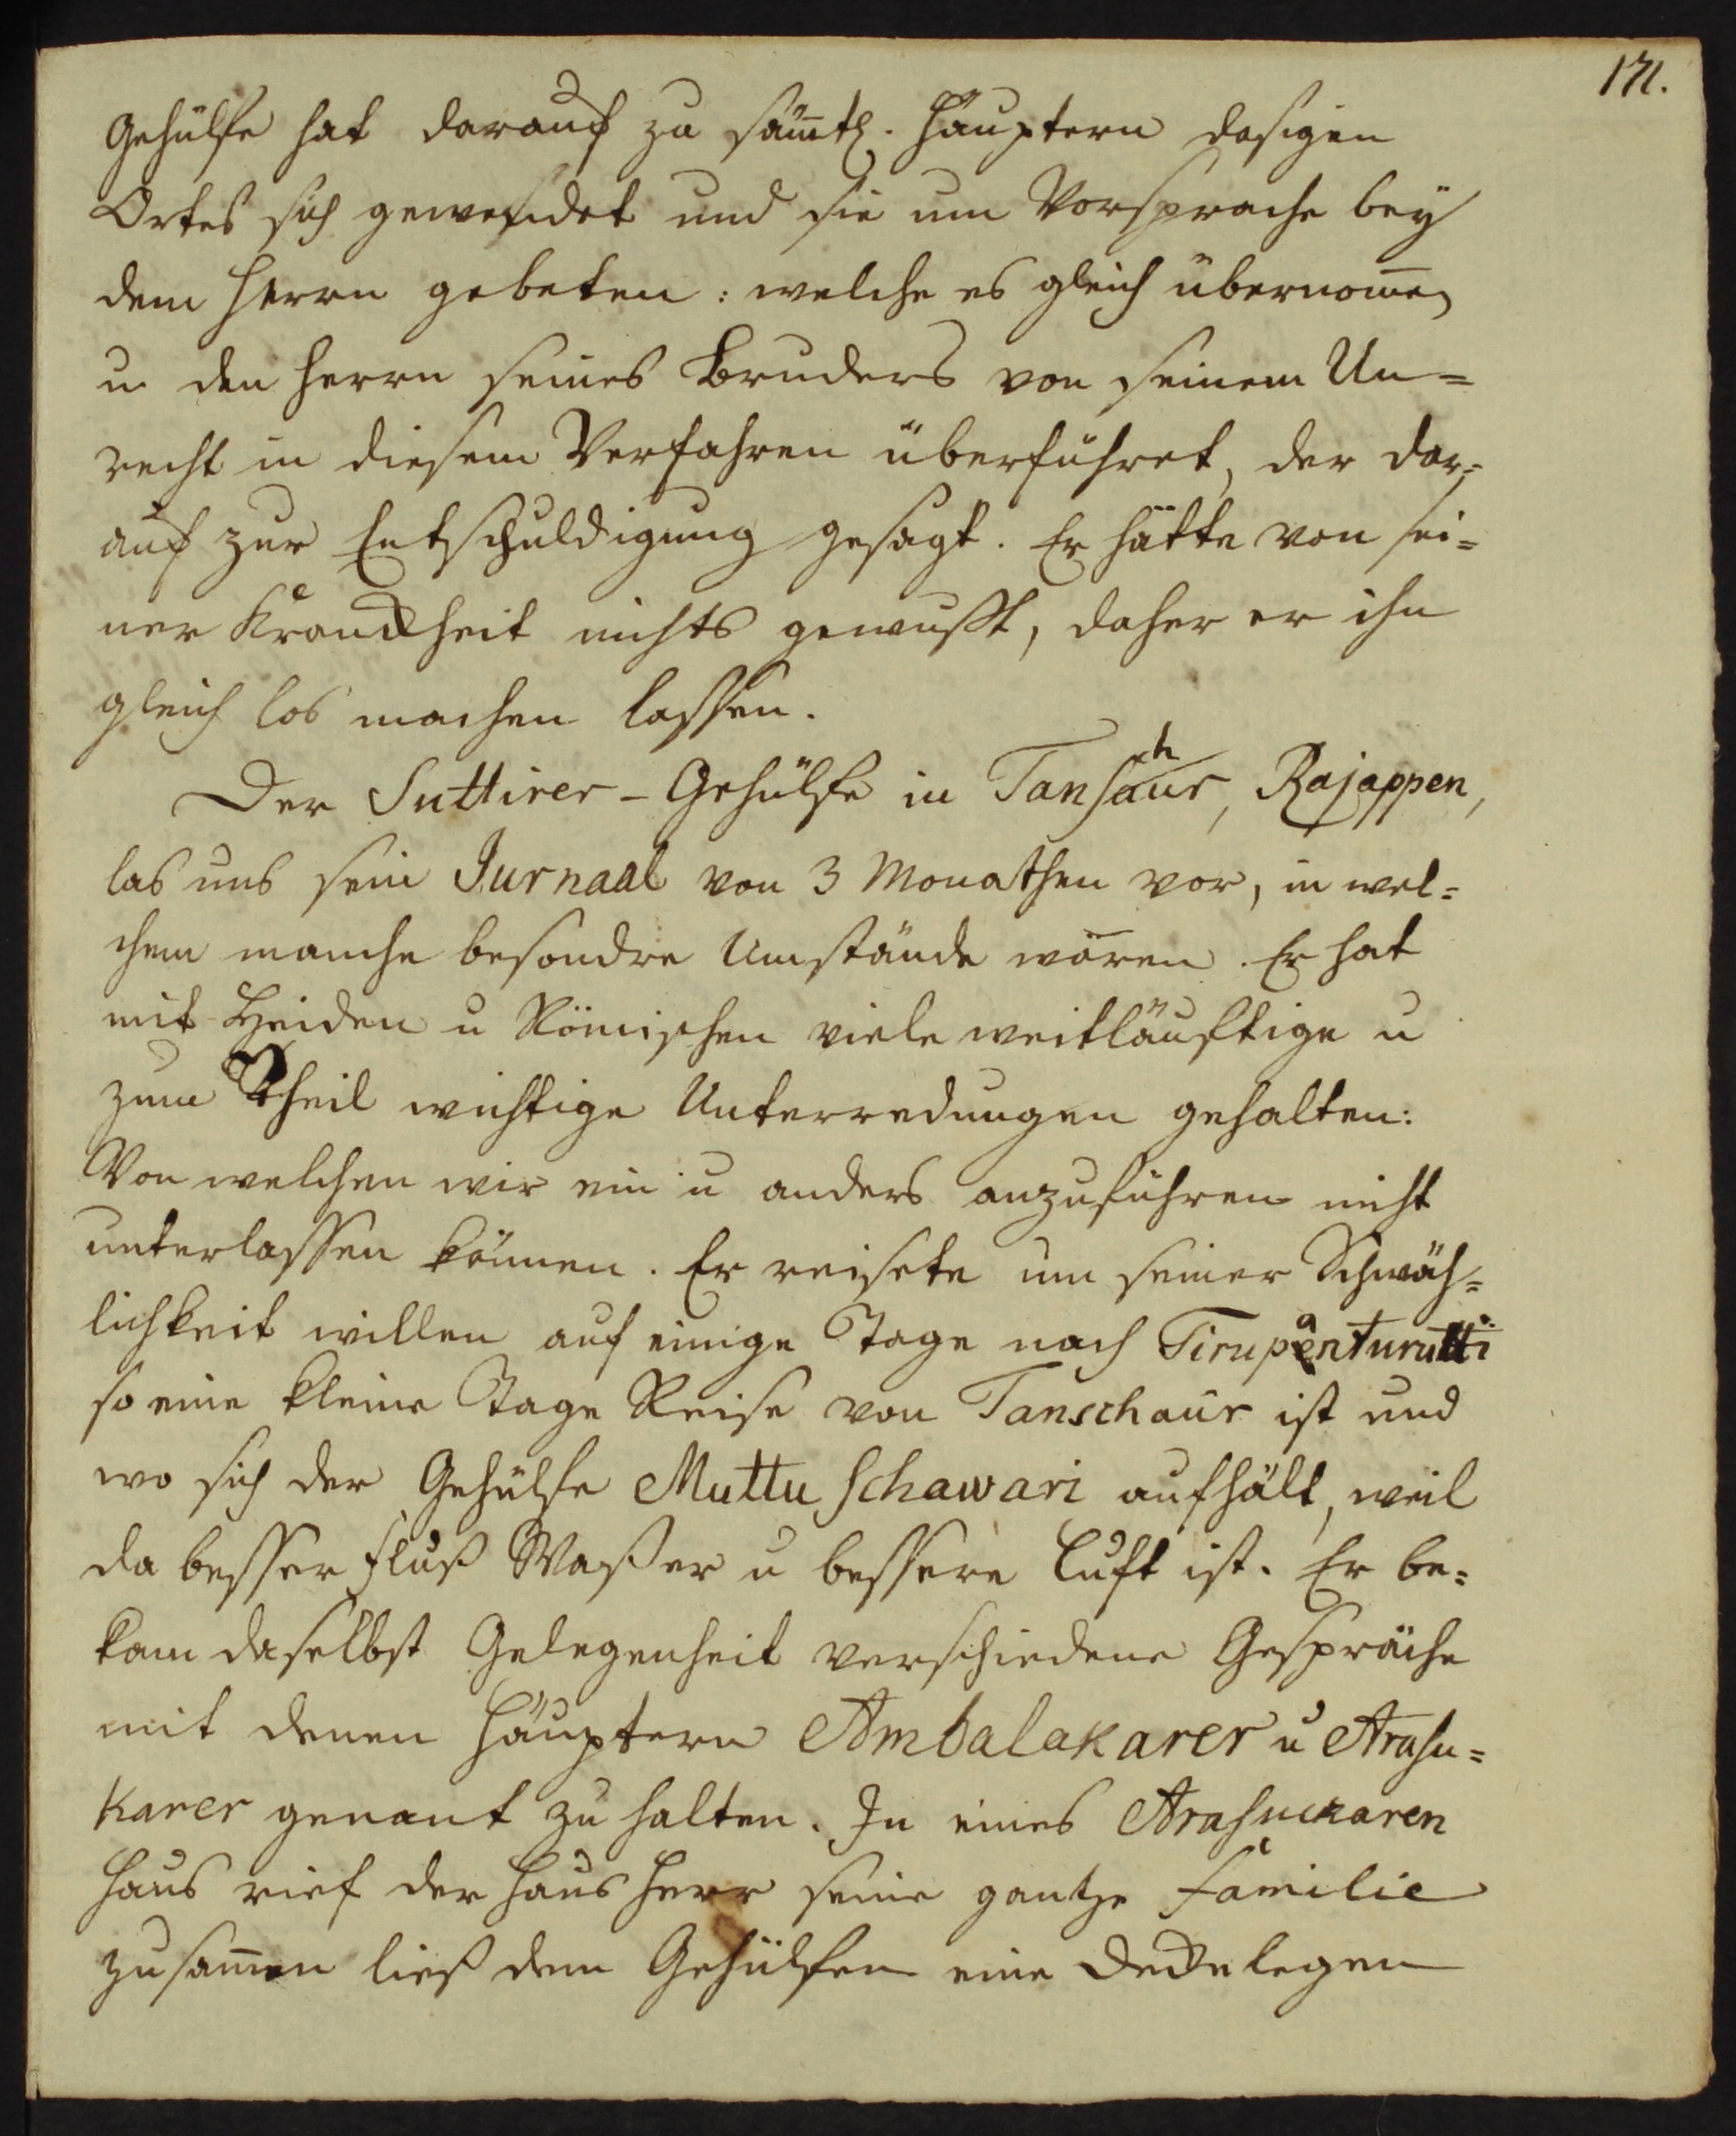 171.
Gehülfe hat darauf zu sämtl. Häuptern dasigen
Ortes sich gewendet und sie um Vorsprache bey
dem Herrn gebeten: welche es gleich übernom̅en
u den Herrn seines Bruders von seinem Un=
recht in diesem Verfahren überführet, der dar=
auf zur Entschuldigung gesagt. Er hätte von sei=
ner Kranckheit nichts gewusst, daher er ihn
gleich los machen lassen.
Der Suttirer-Gehülfe in Tanschaur, Rajappen,
las uns sein Jurnaal von 3 Monathen vor, in wel=
chem manche besondre Umstände waren. Er hat
mit Heiden u Römischen viele weitläuftige u
zum Theil wichtige Unterredungen gehalten:
Von welchen wir ein u anders anzuführen nicht
unterlassen können. Er reisete um seiner Schwäch=
lichkeit willen auf einige Tage nach Tirupanturutti
so eine kleine Tage Reise von Tanschaur ist und
wo sich der Gehülfe Muttu Schawari aufhält, weil
da besser Fluß Waßer u bessere Luft ist. Er be=
kam daselbst Gelegenheit verschiedene Gespräche
mit denen Häuptern Ambalakarer u Arasu=
karer genant zu halten. In eines Arasuckaren
Haus rief der Haus Herr seine gantze Familie
zusam̅en ließ dem Gehülfen eine Decke legen